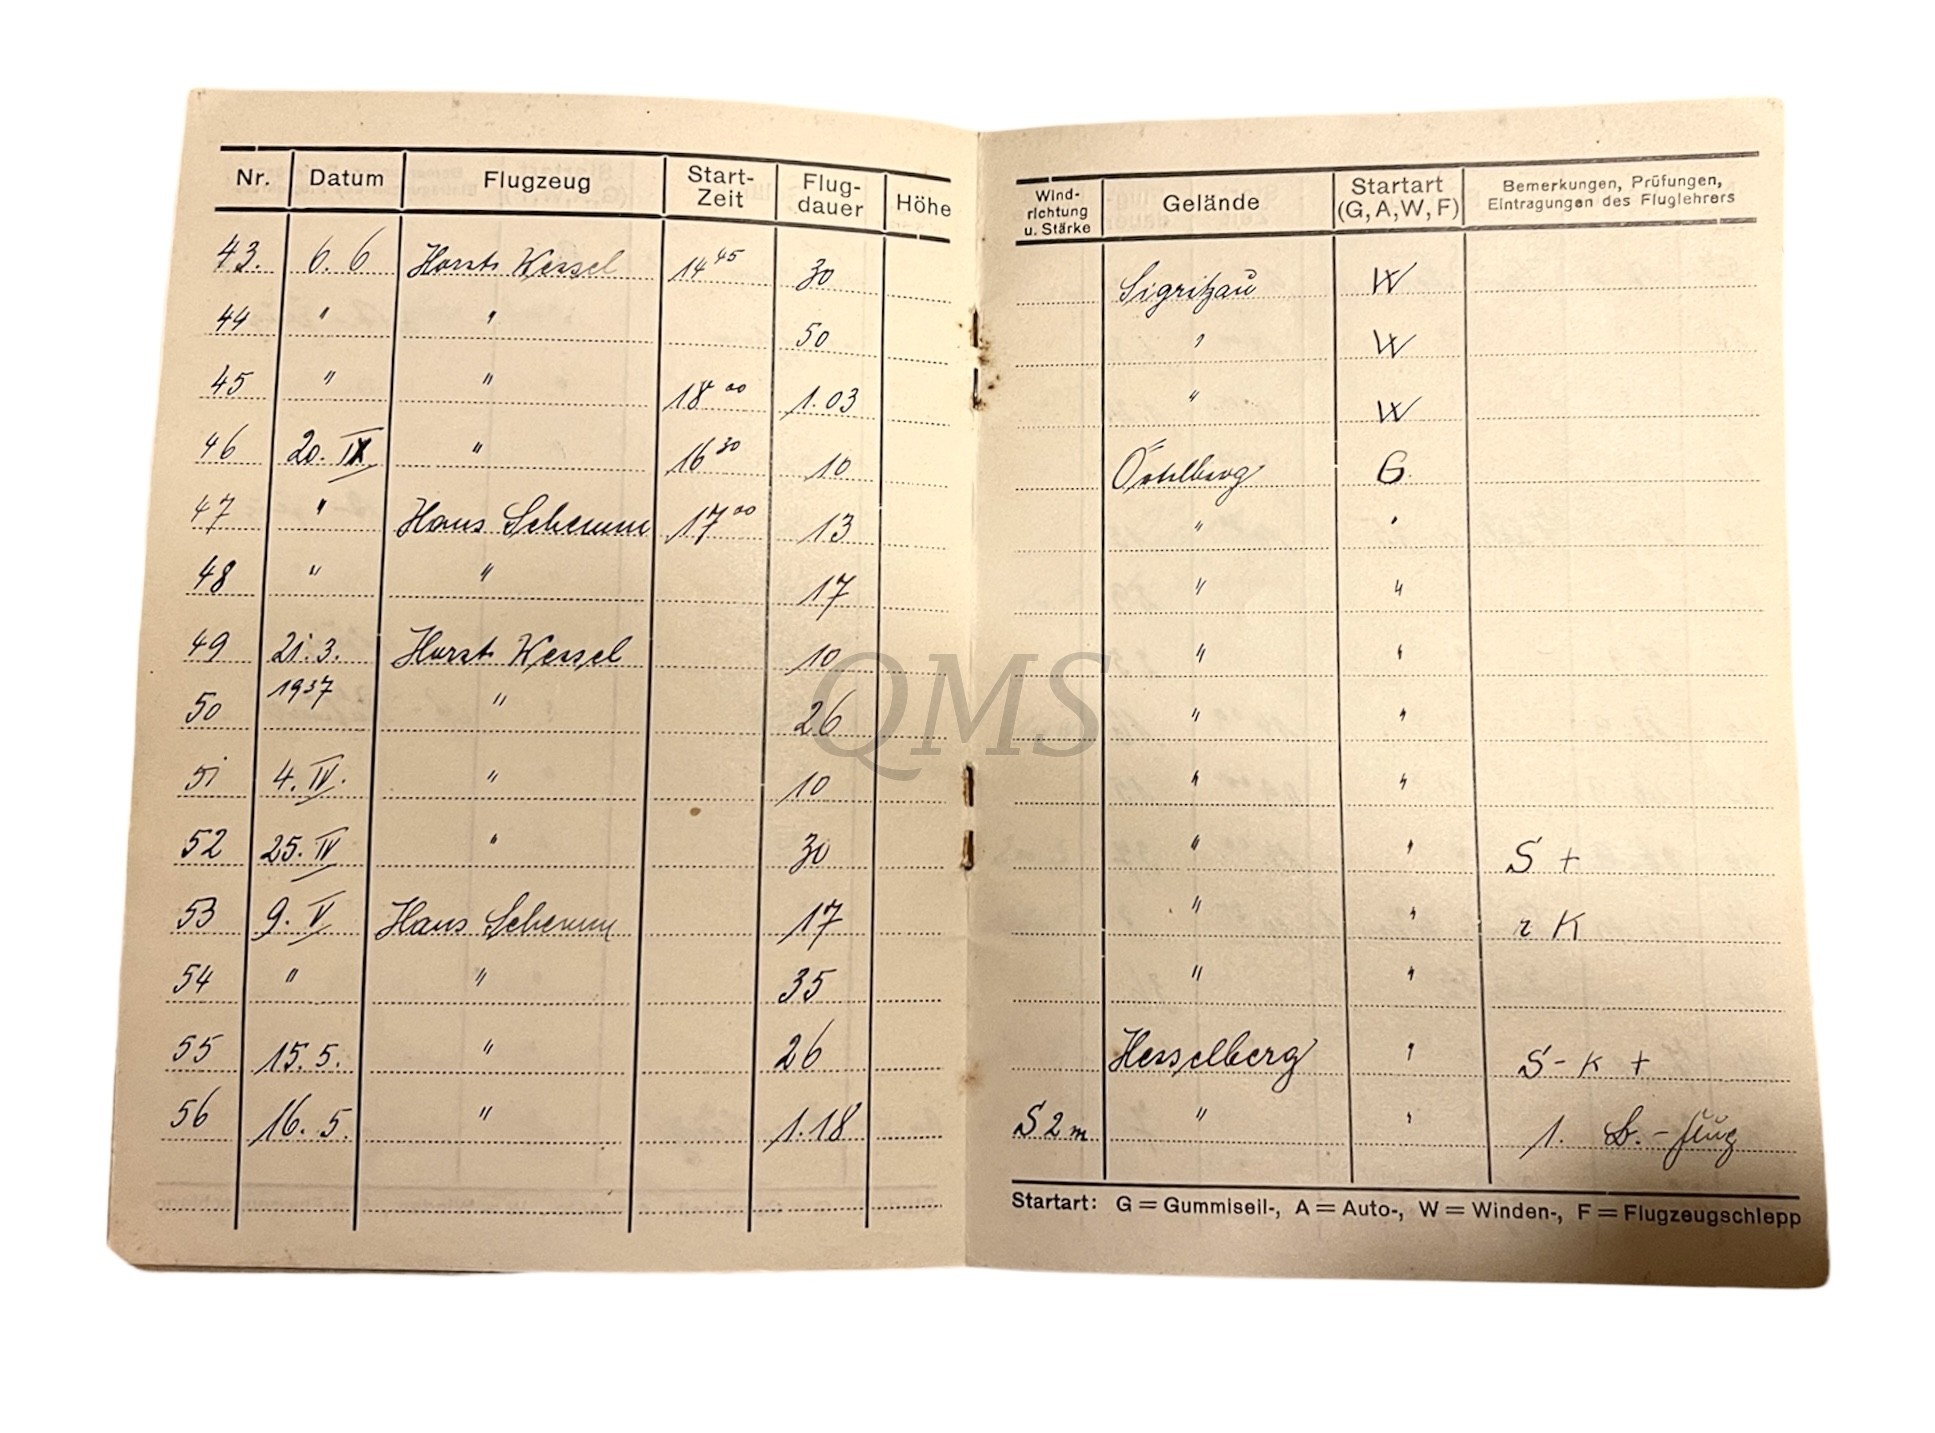 Nr. Datum Flugzeug Start-Zeit Flug-dauer Höhe Wind-richtung u. Stärke Gelände Startart (G, A, W, F) Bemerkungen, Prüfungen, Eintragungen des Fluglehrers
43. 6. 6 Horst Wessel 14 45 30 Sigritzau W
44 " " 50 " W
45 " " 18 00 1.03 " W
46 20. IX " 16 30 10 G
47 " Hans Schemm 17 00 13 " "
48 " " 17 " "
49 21. 3. Horst Wessel 10 " "
50 1937 " 26 " "
51 4. IV. " 10 " "
52 25. IV " 30 " " S +
53 9. V Hans Schemm 17 " " r K
54 " " 35 " "
55 15. 5. " 26 Hesselberg " S - K +
56 16. 5. " 1.18 S 2 m " " 1. -flug
Startart: G = Gummiseil-, A = Auto-, W = Winden-, F = Flugzeugschlepp
QMS